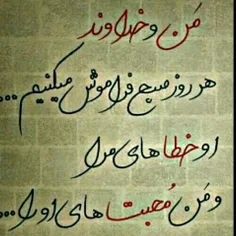 من و خداوند
هر روز صبح فراموش میکنیم...
او خطاهای مرا
و من محبت های او را...